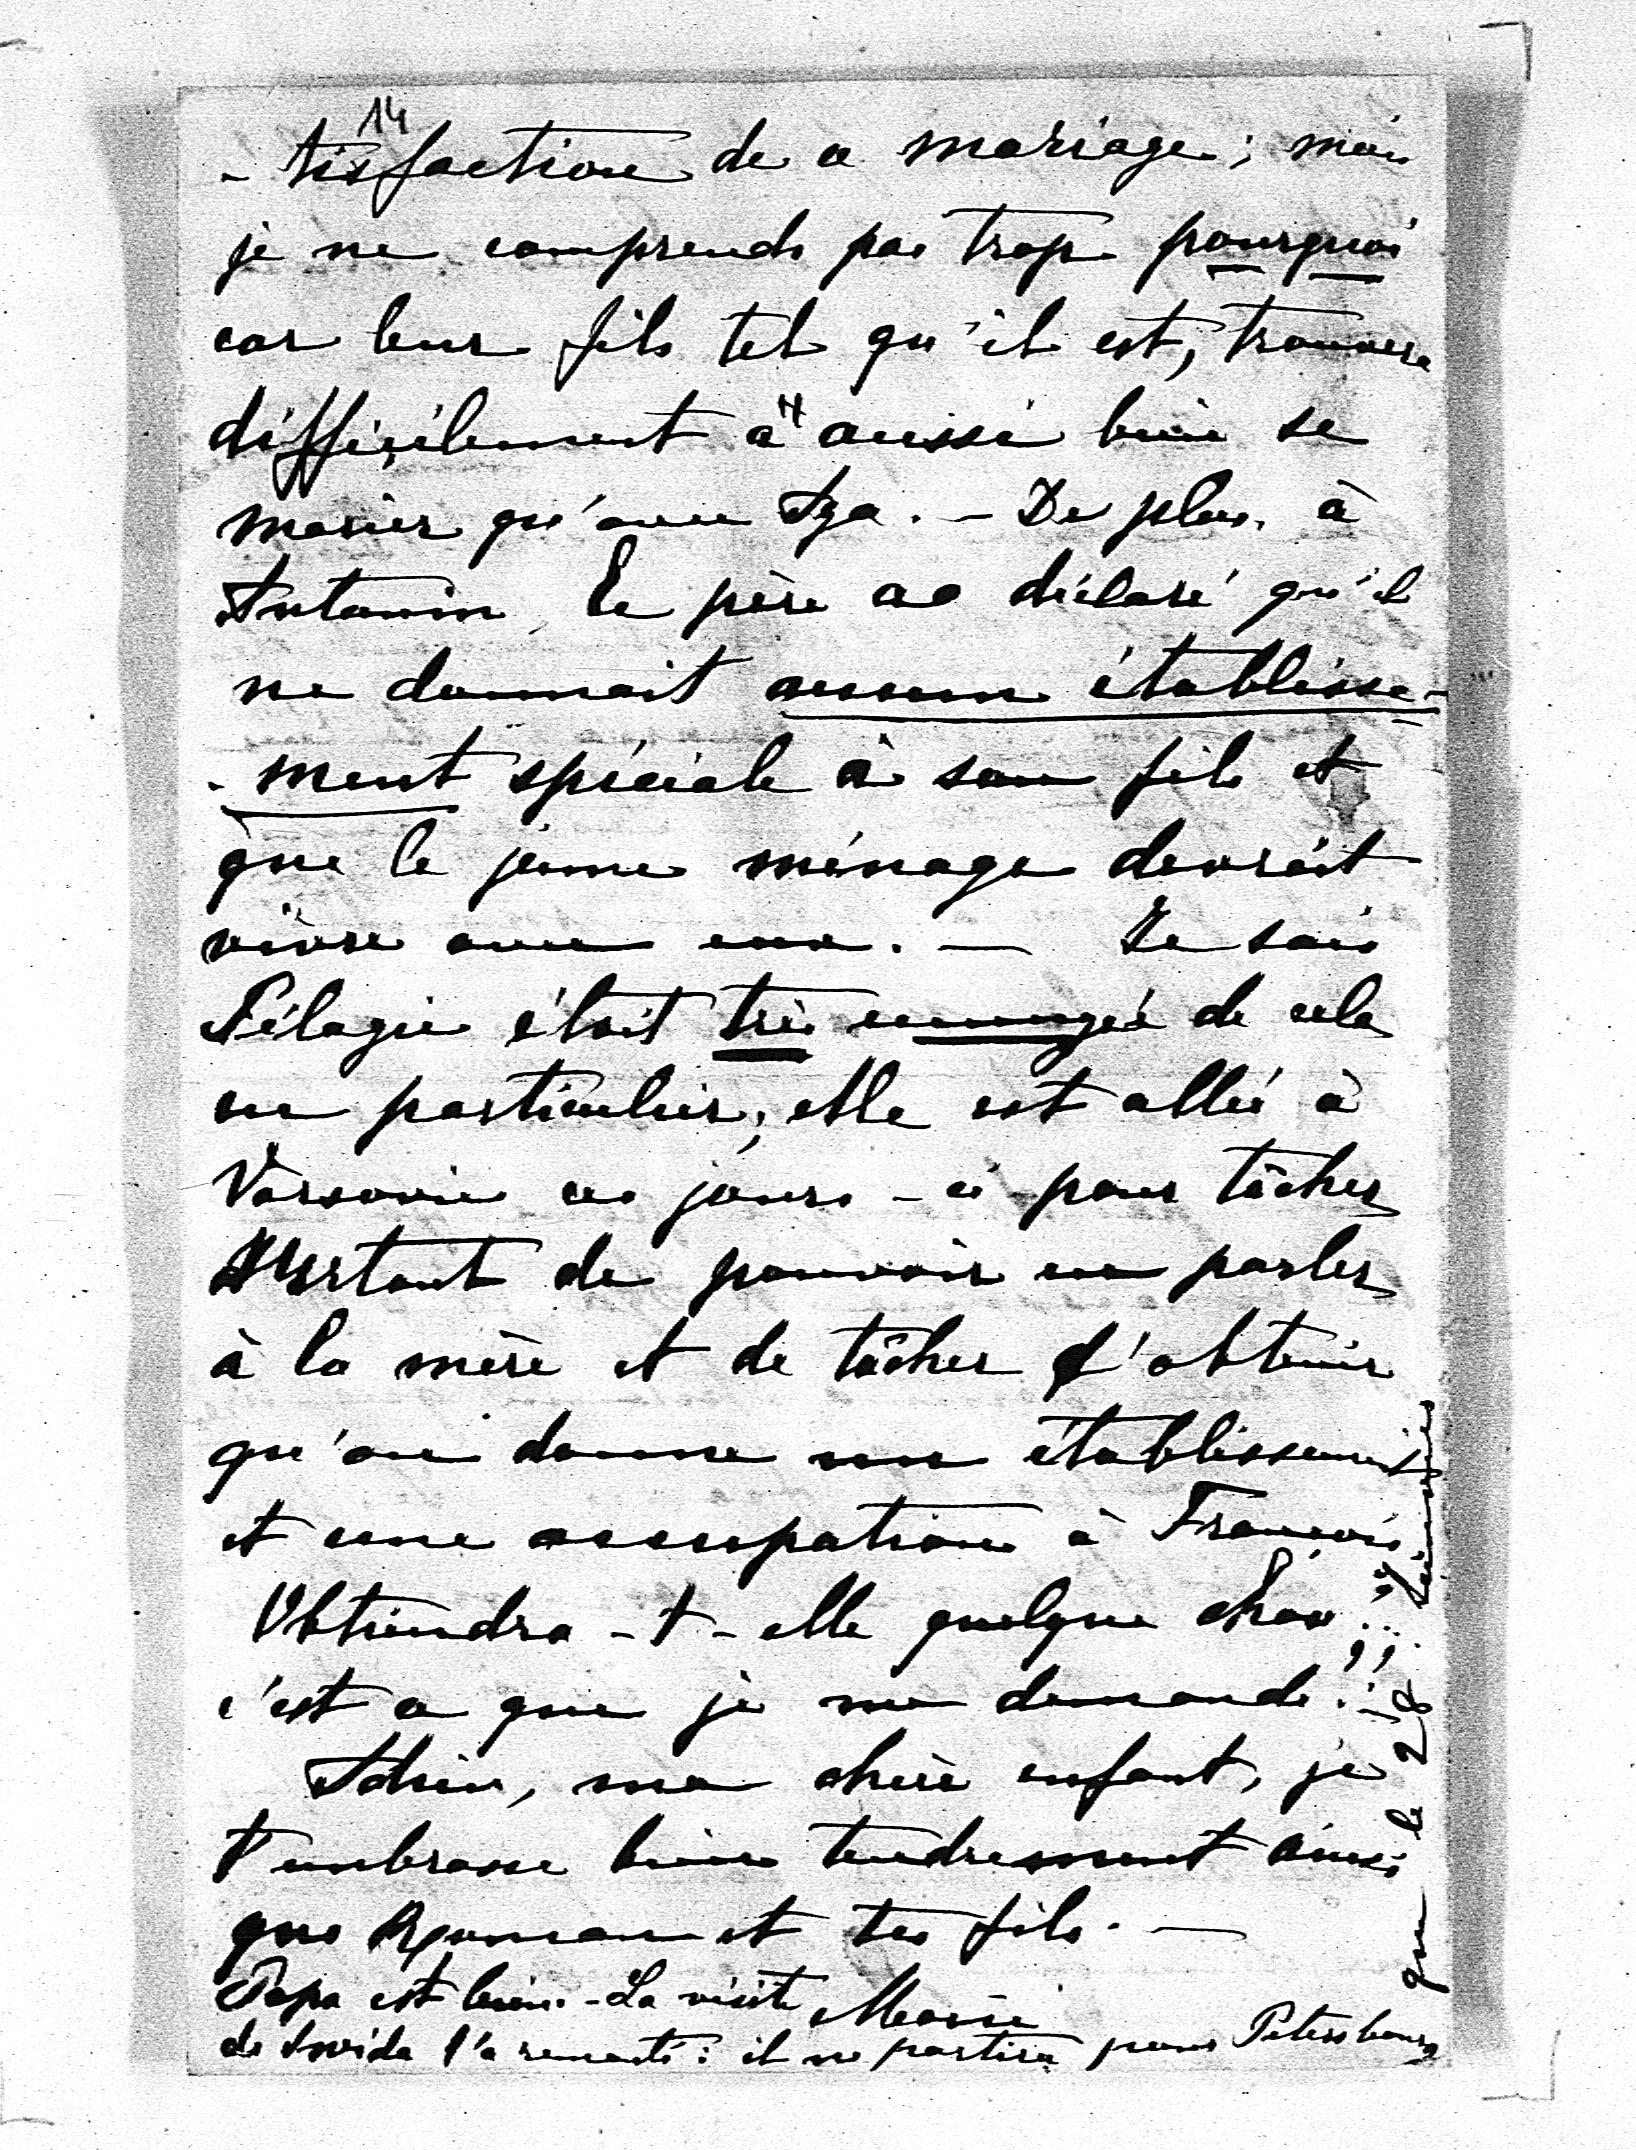 14
- tisfaction de ce mariage; mais
je ne comprends pas trop pourquoi
car leur fils tel qu'il est, trouvera
difficilement à aussi bien se
marier qu'avec Iza. - De plus, à
Antonin, le père a déclaré qu'il
ne donnait aucun établisse-
- ment spéciale à son fils et
que le jeune ménage devrait
vivre avec eux. — Je sais
Pélagie était très ennuyée de cela
en particulier; elle est allée à
Varsovie ces jours-ci pour tâcher
surtout de pouvoir en parler
à la mère et de tâcher d'obtenir
qu'on donne un établissement
et une occupation à François
Obtiendra-t-elle quelque chose??...
c'est ce que je me demande!!!
Adieu, ma chère enfant, je
t'embrasse bien tendrement ainsi
que Roman et tes fils. —
Papa est bien. - La visite
Marie
de l'a remonté: il ne partira pour Petersbourg
que le 28